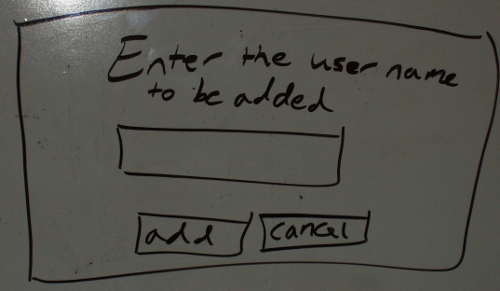 Enter the user name
to be added
add cancel